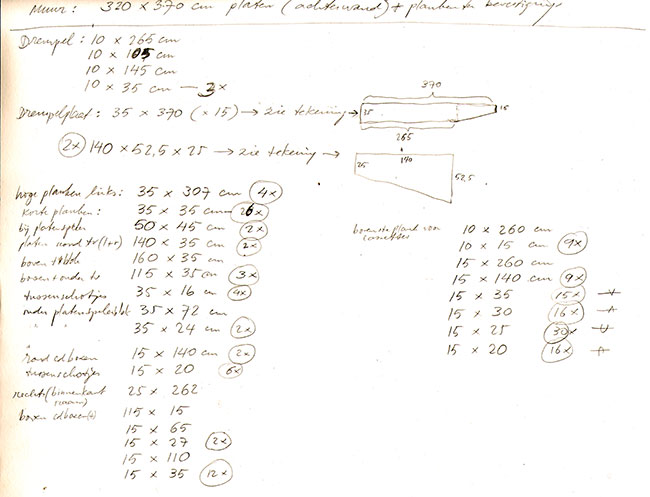 Muur: 320 x 370 cm platen (achterwand) + planken te bevestiging
Drempel: 10 x 265 cm
10 x 105 cm
10 x 145 cm
10 x 35 cm — 3x
Drempelplaat: 35 x 370 (x 15) → zie tekening →
370
25
15
265
2x 140 x 52,5 x 25 → zie tekening →
140
25
52,5
hoge planken links: 35 x 307 cm 4x
korte planken: 35 x 35 cm — 26x
bij platenspeler 50 x 45 cm 2x
platen rond tv (l+r) 140 x 35 cm 2x
boven 160 x 35 cm
boven + onder tv 115 x 35 cm 3x
tussenschotjes 35 x 16 cm 4x
onder platenspeler 35 x 72 cm
" " 35 x 24 cm 2x
Rond cd boxen 15 x 140 cm 2x
tussenschotjes 15 x 20 6x
rechts (binnenkant raam) 25 x 262
boven cd boxen 115 x 15
15 x 65
15 x 27 2x
15 x 110
15 x 35 12x
bovenste plank voor cassettes 10 x 260 cm
10 x 15 cm 9x
15 x 260 cm
15 x 140 cm 9x
15 x 35 15x
15 x 30 16x
15 x 25 30x
15 x 20 16x